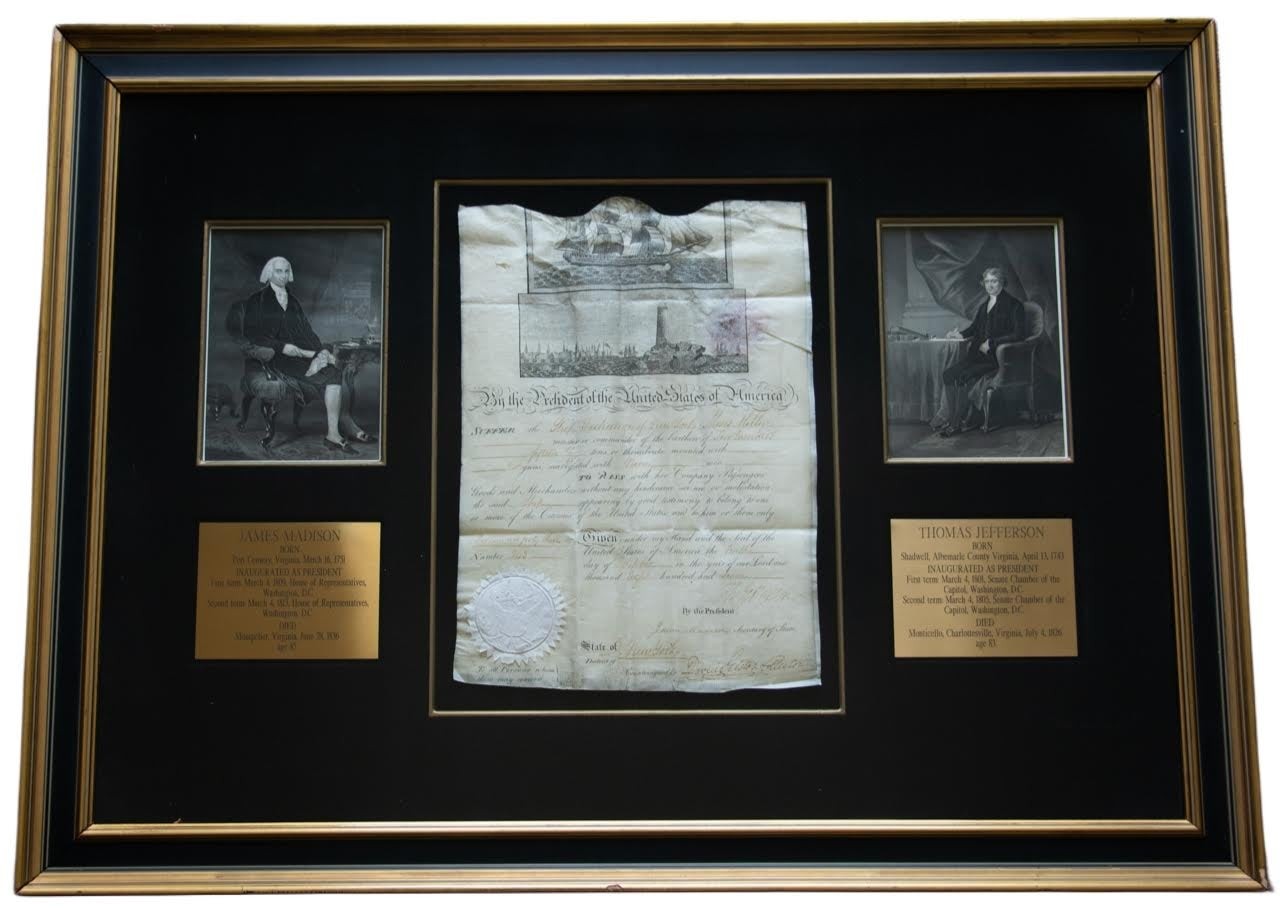 JAMES MADISON
BORN
Port Conway, Virginia, March 16, 1751
INAUGURATED AS PRESIDENT
First term: March 4, 1809, House of Representatives,
Washington, D.C.
Second term: March 4, 1813, House of Representatives,
Washington, D.C.
DIED
Montpelier, Virginia, June 28, 1836
age 85
By the President of the United States of America
SUFFER the Ship of New York
master or commander of the burthen of
tons or thereabouts mounted with
guns, navigated with men
TO PASS with her Company Passengers
Goods and Merchandise without any hinderance seizure or molestation
the said appearing by good testimony to belong to one
or more of the Citizens of the United States and to him or them only
Given under my Hand and the Seal of the
Number United States of America the
day of in the year of our Lord one
thousand eight hundred and
By the President
Secretary of State
State of New York
District of
Countersigned by
To all Persons whom
these may concern
THOMAS JEFFERSON
BORN
Shadwell, Albemarle County Virginia, April 13, 1743
INAUGURATED AS PRESIDENT
First term: March 4, 1801, Senate Chamber of the
Capitol, Washington, D.C.
Second term: March 4, 1805, Senate Chamber of the
Capitol, Washington, D.C.
DIED
Monticello, Charlottesville, Virginia, July 4, 1826
age 83